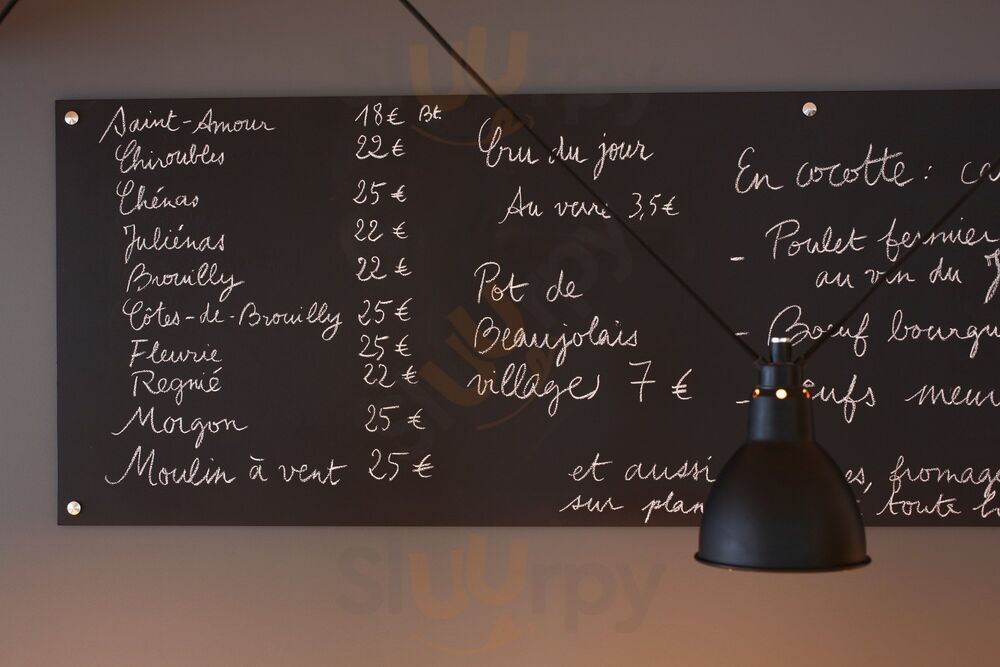 Saint-Amour 18€ Bt.
Chiroubles 22€
Chénas 25€
Juliénas 22€
Brouilly 22€
Côtes-de-Brouilly 25€
Fleurie 25€
Regnié 22€
Morgon 25€
Moulin à vent 25€
Cru du jour
Au verre 3,5€
Pot de
Beaujolais
village 7€
En cocotte :
- Poulet fermier
au vin du
- Bœuf
-
et aussi
sur toute
Slurpy
Slurpy
Slurpy
Slurpy